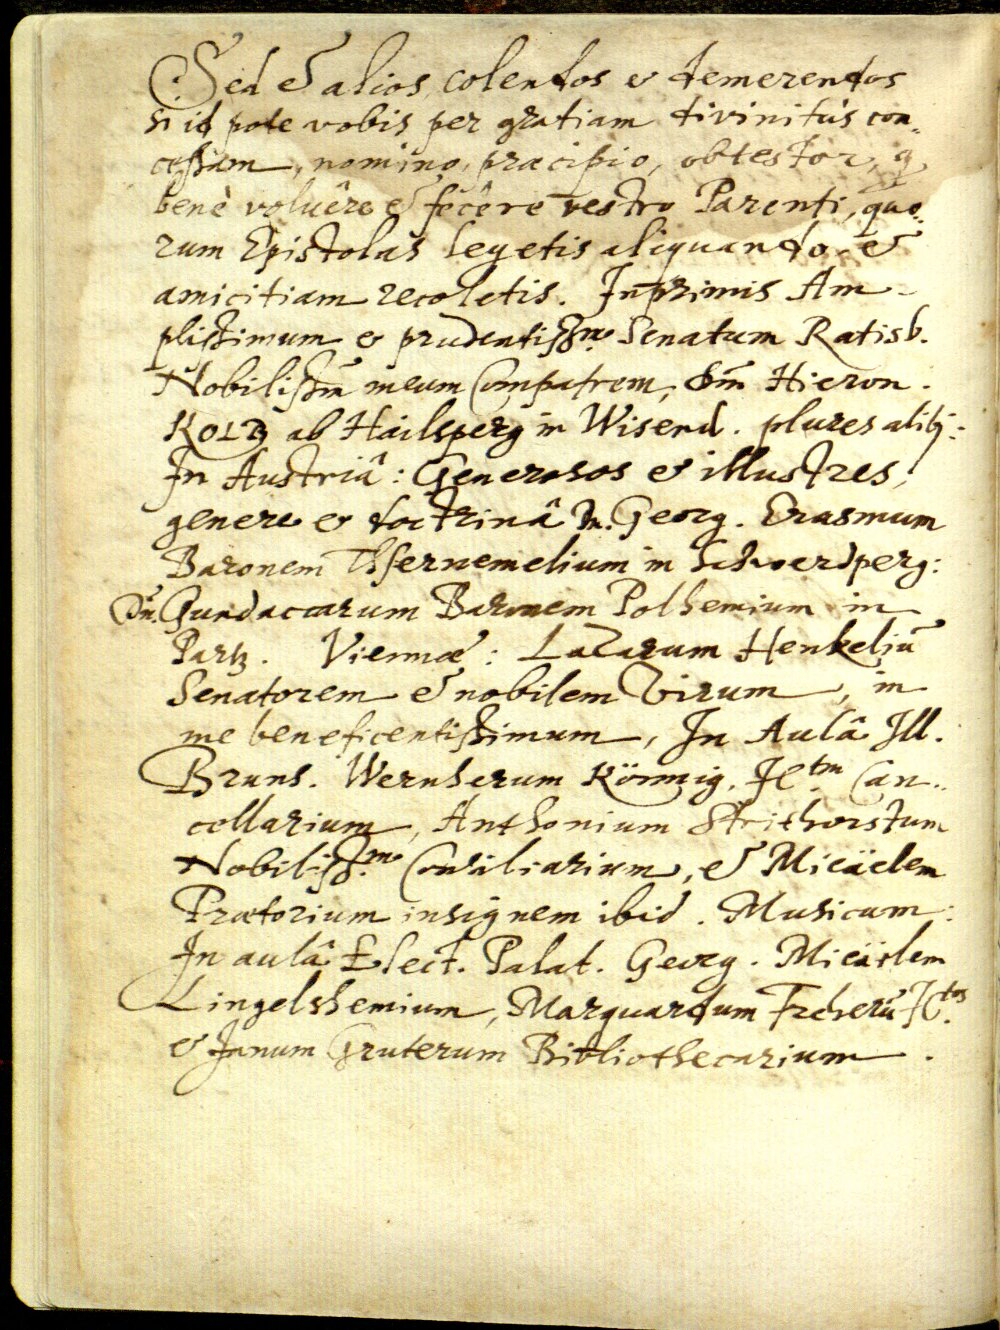 Sed & alios, colendos & demerendos
si id pote vobis per gratiam divinitùs con-
cessam, nomino, praecipio, obtestor, q
benè voluêre & fecêre vestro Parenti, quo-
rum Epistolas legetis aliquando &
amicitiam recoletis. Inprimis Am-
plissimum & prudentissm. Senatum Ratisb.
Nobilissm̄ meum Compatrem, Dm̄ Hieron.
KOLB ab Hailsperg in Wisend. plures alibj:
In Austriâ: Generosos & illustres,
genere & doctrinâ Dn. Georg. Erasmum
Baronem Tschernemelium in Schwerdperg:
Dn̄. Gundaccarum Baronem Polhemium in
Partz. Viennae: Lazarum Henkeliū
Senatorem & nobilem Virum, in
me beneficentissimum, In Aulâ Ill.
Bruns. Wernherum Könnig. JCtm. Can-
cellarium, Anthonium Strithorstum
Nobilissm. Consiliarium, & Micäelem
Praetorium insignem ibid. Musicum:
In aulâ Elect. Palat. Georg. Micäelem
Lingelshemium, Marquardum Freherū JCtos.
& Janum Gruterum Bibliothecarium.